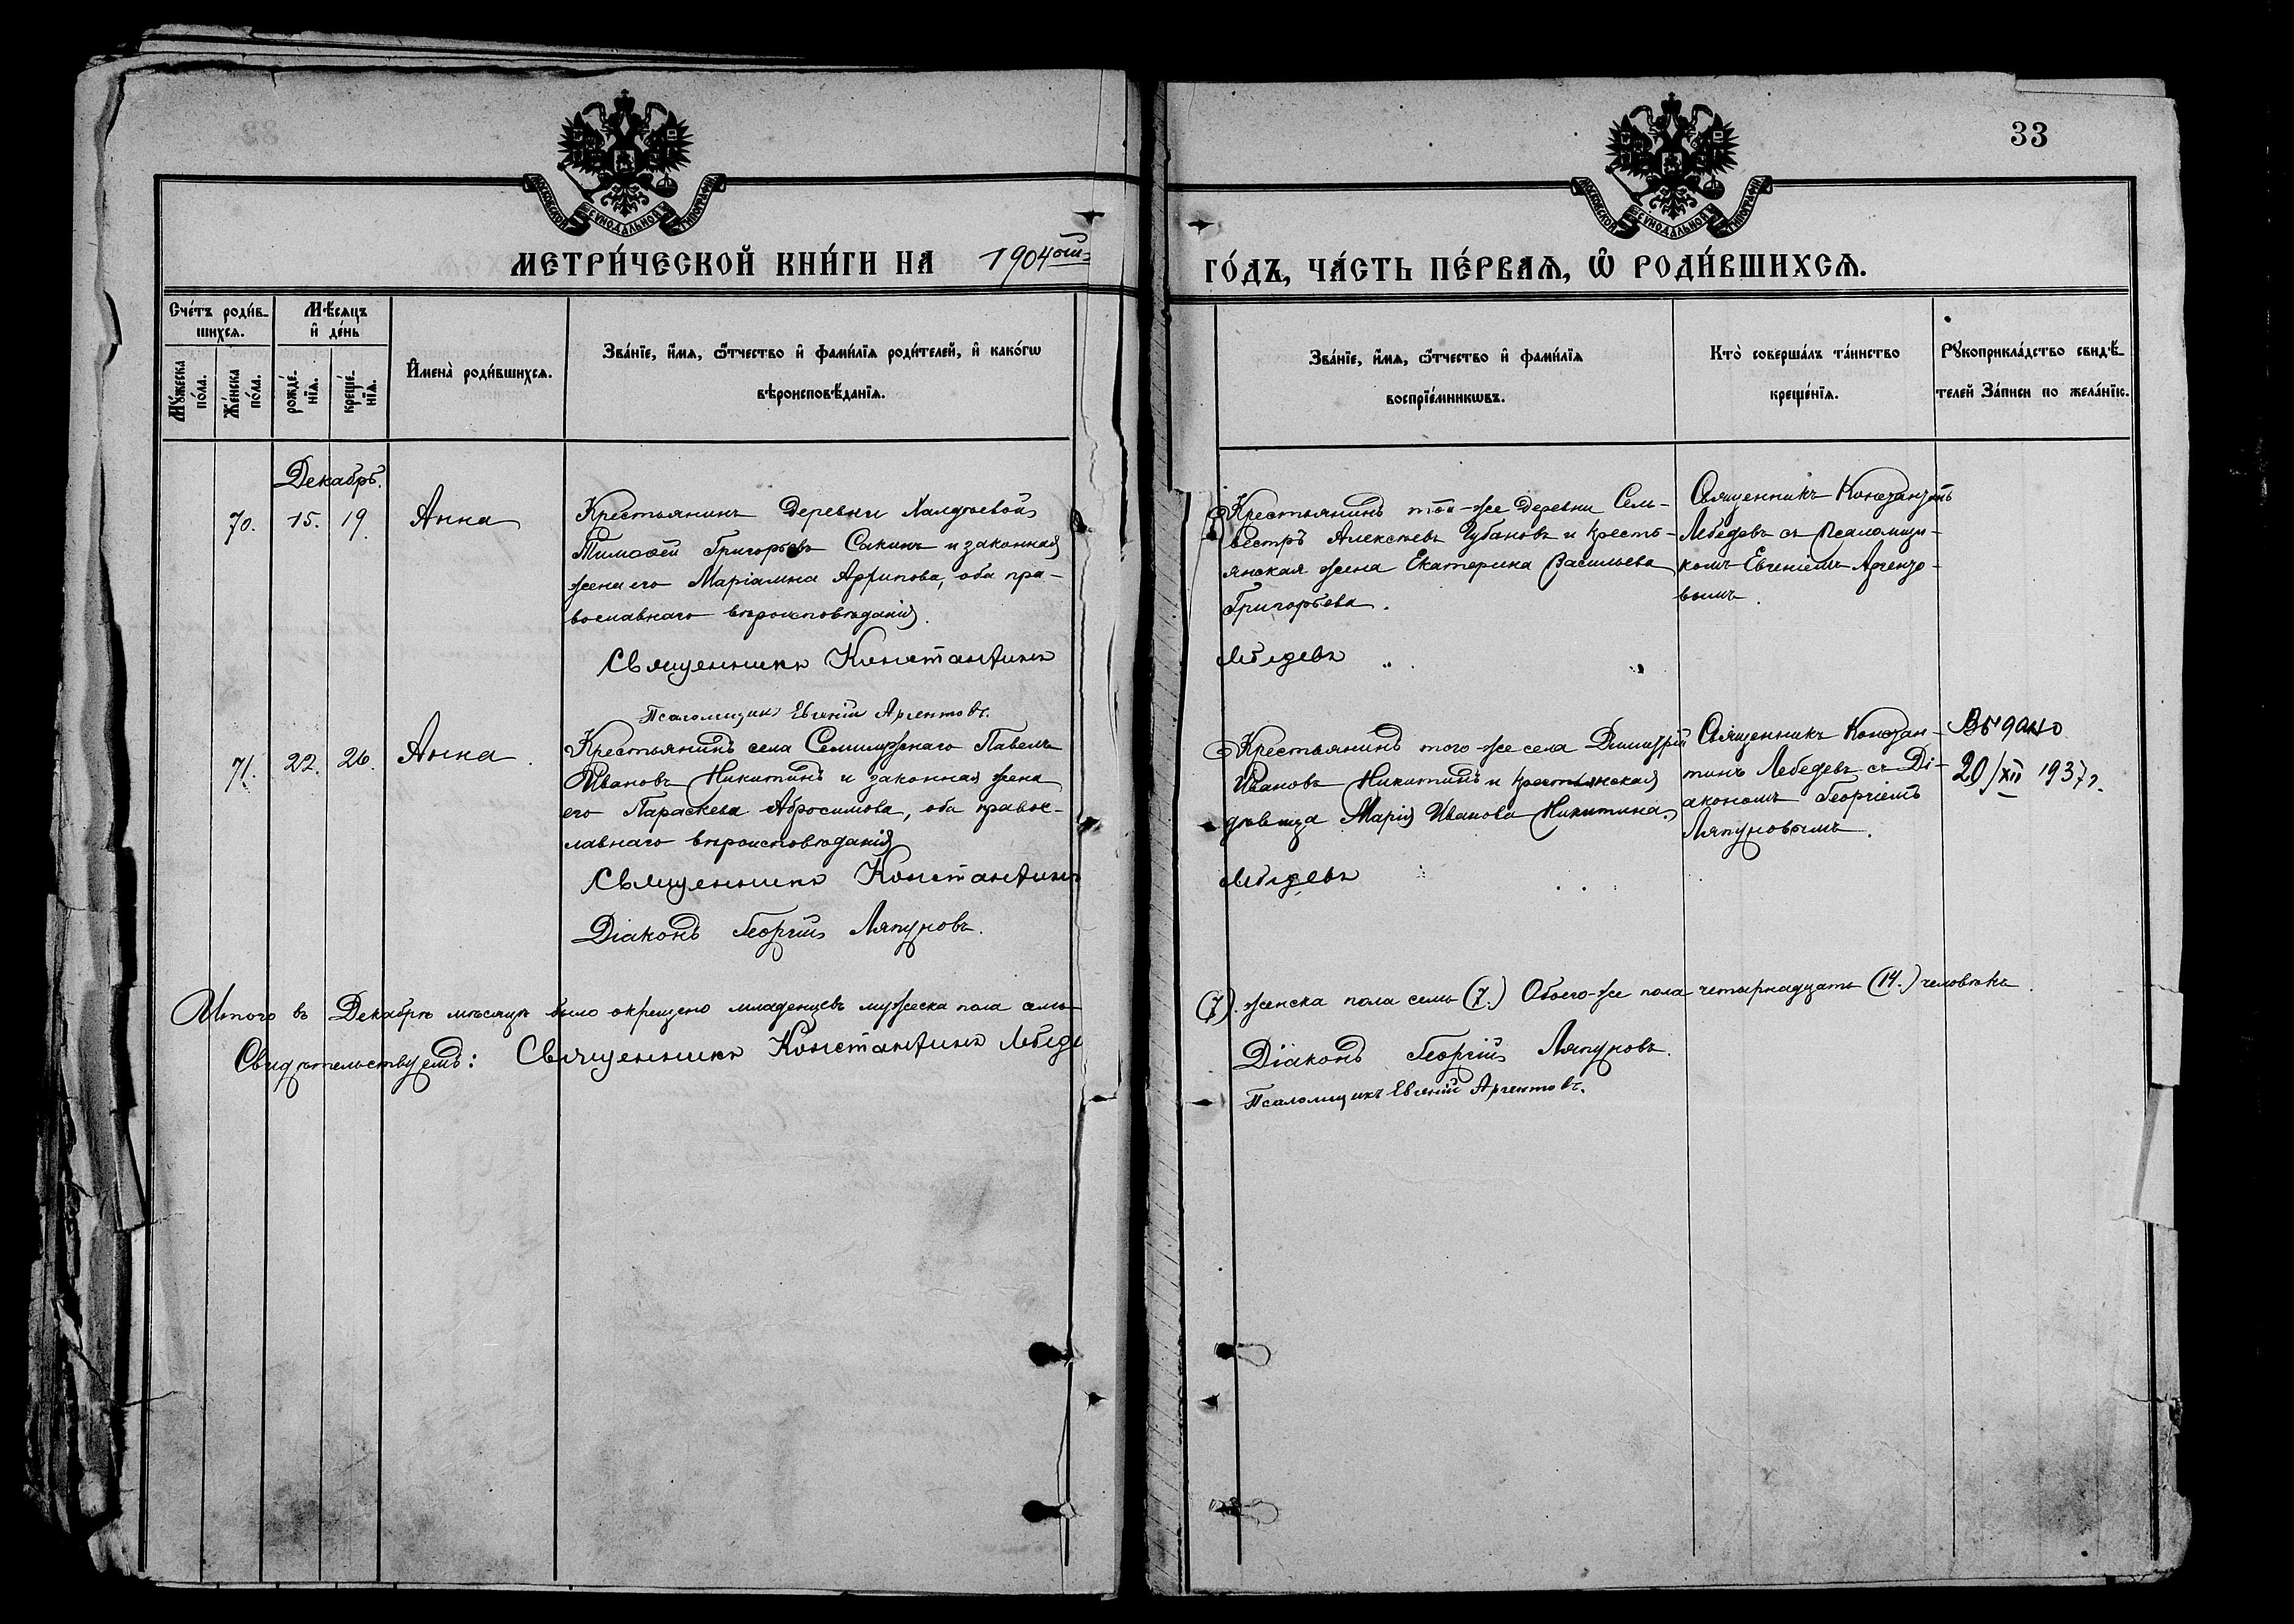 33
МОСКОВСКОЙ СУНОДАЛЬНОЙ ТИПОГРАФІИ
МОСКОВСКОЙ СУНОДАЛЬНОЙ ТИПОГРАФІИ
МЕТРИ́ЧЕСКОЙ КНИ́ГИ НА 1904ый
ГО́ДЪ, ЧА́СТЬ ПЕ́РВАѦ, Ѡ҆ РОДИ́ВШИХСѦ.
Сче́тъ роди́в-
шихсѧ.
Мꙋ́жеска по́ла.
Же́нска по́ла.
Мѣ́сѧцъ
и҆ де́нь
рожде́-нїѧ.
креще́-нїѧ.
И҆мена̀ роди́вшихсѧ.
Зва́нїе, и҆́мѧ, ѻ҆́тчество и҆ фами́лїѧ роди́телей, и҆ како́гѡ
вѣроисповѣ́данїѧ.
Зва́нїе, и҆́мѧ, ѻ҆́тчество и҆ фами́лїѧ
воспрїе́мникѡвъ.
Кто̀ соверша́лъ та́инство
креще́нїѧ.
Рꙋкоприкла́дство свидѣ́-
телей за́писи по жела́нїю.
Декабрь.
70. 15. 19. Анна
Крестьянинъ деревни Халдѣевой
Тимоѳей Григорьевъ Сакинъ и законная
жена его Маріамна Архипова, оба пра-
вославнаго вѣроисповѣданія.
Священникъ Константинъ
Псаломщикъ Евгеній Аргентовъ.
Крестьянинъ той-же деревни Сель-
вестръ Алексѣевъ Губановъ и кресть-
янская жена Екатерина Васильева
Григорьева.
Лебедевъ
Священникъ Константинъ
Лебедевъ съ псаломщи-
комъ Евгеніемъ Аргенто-
вымъ.
71. 22. 26. Анна.
Крестьянинъ села Павелъ
Ивановъ Никитинъ и законная жена
его Параскева Абросимова, оба правос-
лавнаго вѣроисповѣданія
Священникъ Константинъ
Діаконъ Георгій Ляпуновъ.
Крестьянинъ того-же села Димитрій
Ивановъ Никитинъ и крестьянская
дѣвица Марія Иванова Никитина.
Лебедевъ
Священникъ Констан-
тинъ Лебедевъ съ Ді-
акономъ Георгіемъ
Ляпуновымъ.
Выдано
20/XII 1937г.
Итого въ Декабрѣ мѣсяцѣ было окрещено младенцевъ мужеска пола семь
(7). женска пола семь (7.) Обоего-же пола четырнадцать (14.) человѣкъ.
Свидѣтельствуемъ: Священникъ Константинъ Лебеде
Діаконъ Георгій Ляпуновъ.
Псаломщикъ Евгеній Аргентовъ.